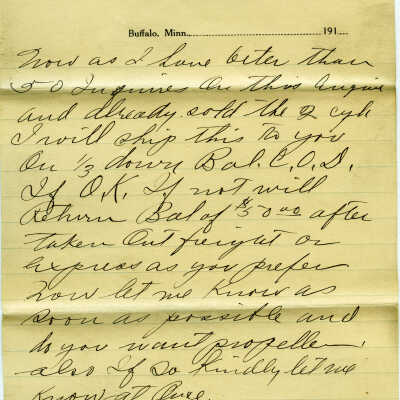 Buffalo, Minn. 191
Now as I have beter than
50 Inquires On this Engine
and already sold the 2 cyl
I will ship this to you
On 1/3 down Bal. C.O.D.
If O.K. If not will
Return Bal of $50 00 after
taken Out freight or
Express as you prefer
now let me know as
soon as possible and
do you want propeller
also If so kindly let me
Know at Once.